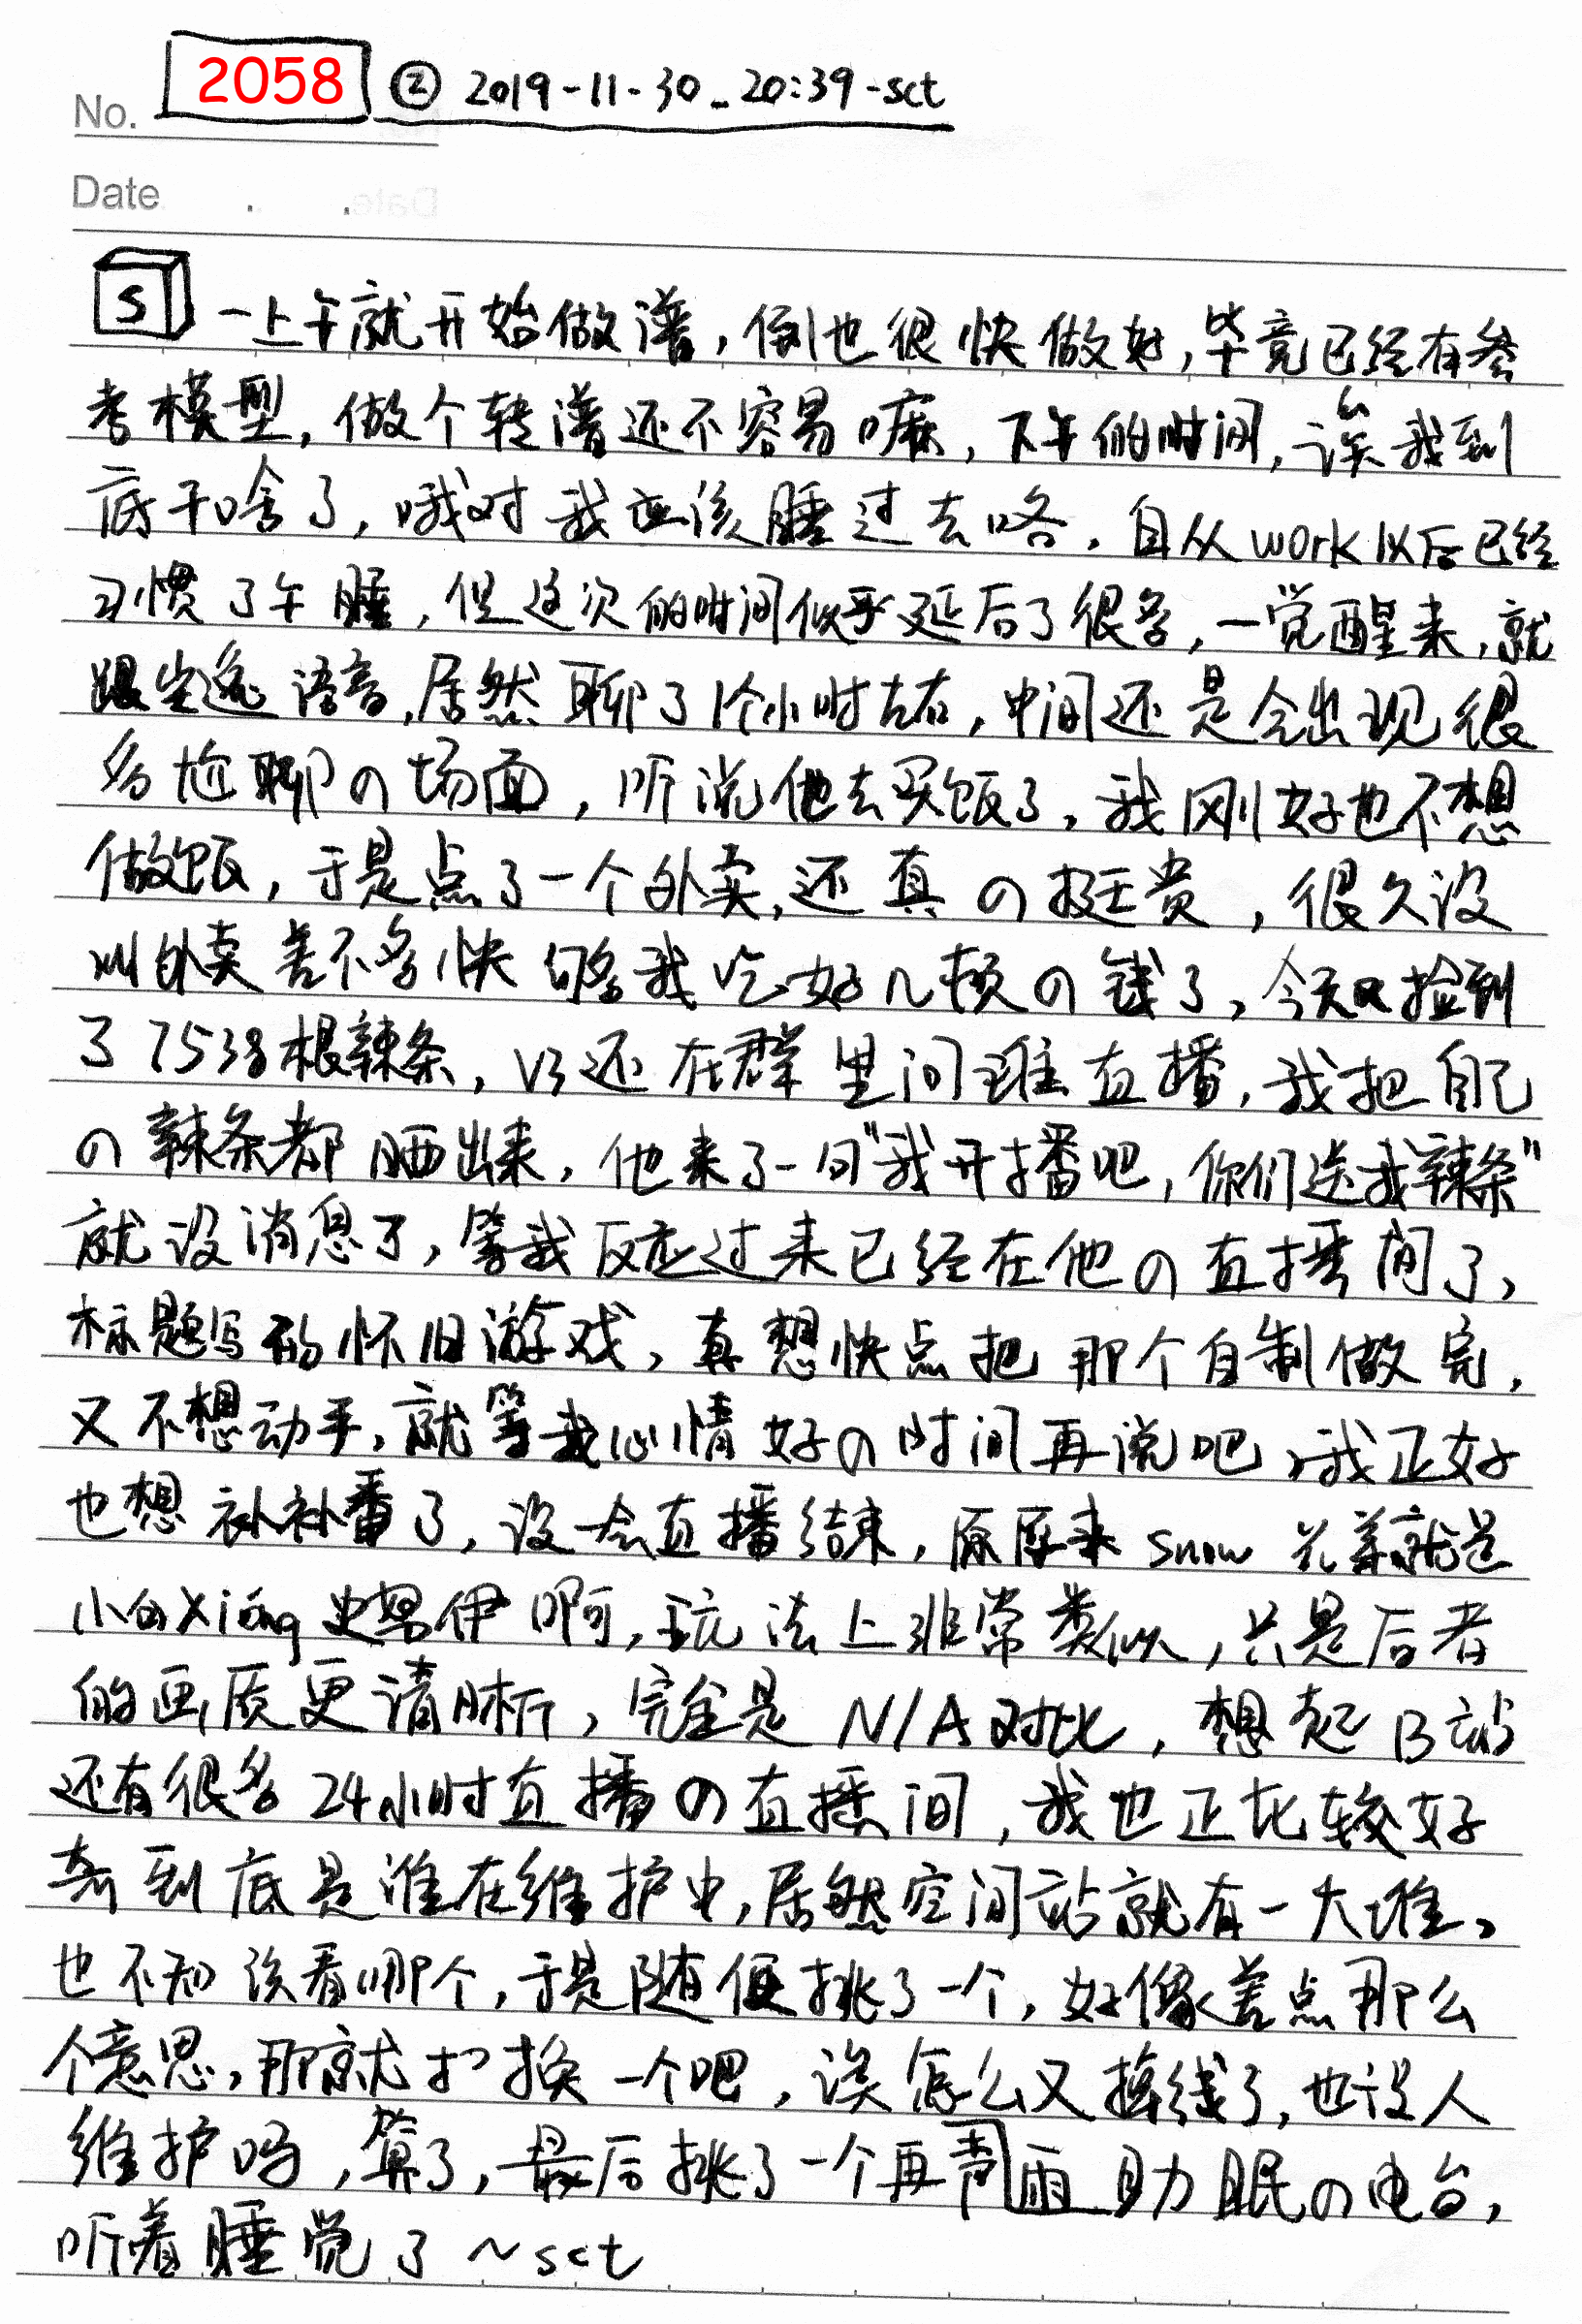 No. 2058 ② 2019-11-30_20:39-sct
Date . .
S 一上午就开始做谱，倒也很快做好，毕竟已经有参
考模型，做个转谱还不容易嘛，下午的时间，诶我到
底干啥了，哦对我应该睡过去咯，自从work以后已经
习惯了午睡，但这次的时间似乎延后了很多，一觉醒来，就
跟 语音，居然聊了1个小时左右，中间还是会出现很
多尬聊の场面，听说他去买饭了，我刚好也不想
做饭，于是点了一个外卖，还真の挺贵，很久没
叫外卖差不多快够我吃好几顿の钱了，今天又捡到
了7538根辣条，V3还在群里问谁直播，我把自己
の辣条都晒出来，他来了一句"我开播吧，你们送我辣条"
就没消息了，等我反应过来已经在他の直播间了，
标题写的怀旧游戏，真想快点把那个自制做完，
又不想动手，就等我心情好の时间再说吧，我正好
也想补补番了，没一会直播结束，原原来snow 兄弟就是
小白Xiong史努伊啊，玩法上非常类似，只是后者
的画质更清晰，完全是N/A对比，想起B站
还有很多24小时直播の直播间，我也正比较好
奇到底是谁在维护中，居然空间站就有一大堆，
也不知该看哪个，于是随便挑了一个，好像差点那么
个意思，那就换一个吧，诶怎么又掉线了，也没人
维护吗，算了，最后挑了一个再声雨助眠の电台，
听着睡觉了～sct